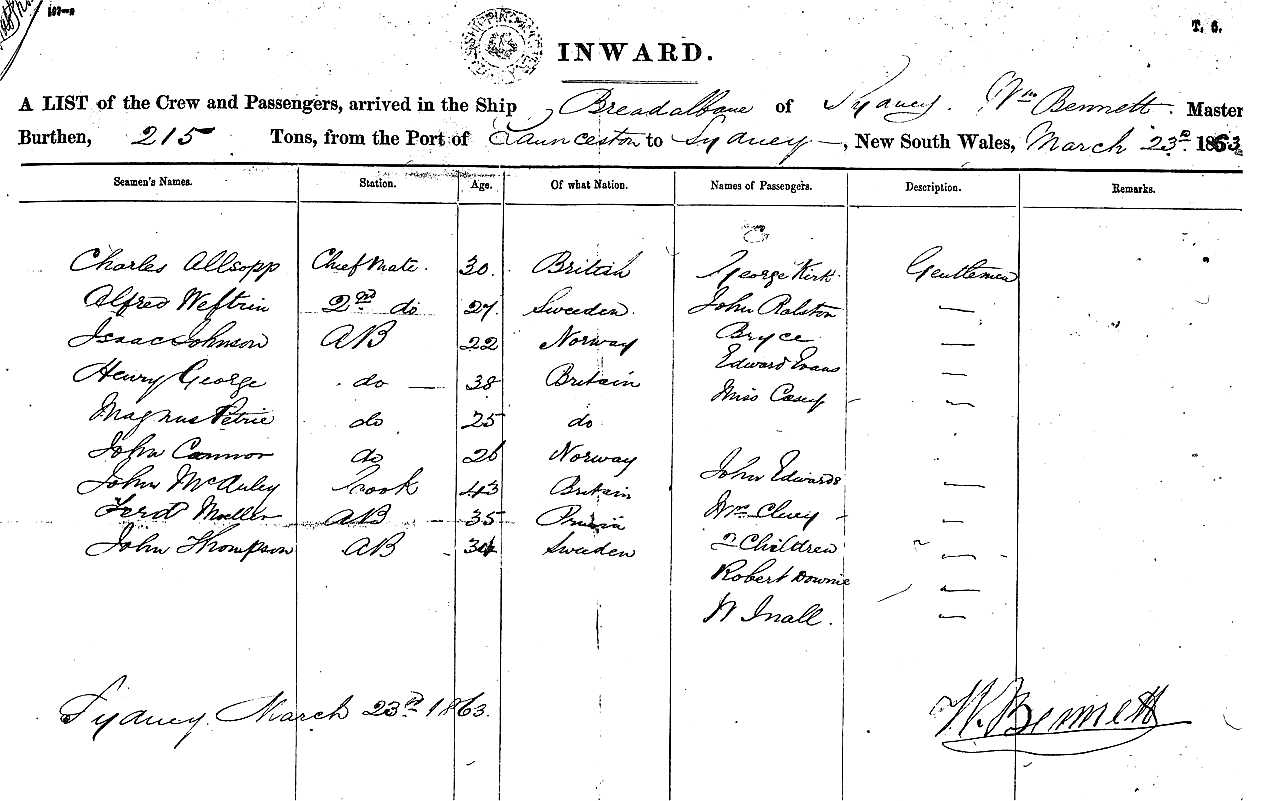 107-a
T. 6.
INWARD.
A LIST of the Crew and Passengers, arrived in the Ship Breadalbane of Sydney. Wm Bennett. Master
Burthen, 215 Tons, from the Port of Launceston to Sydney, New South Wales, March 23rd 1863
Seamen's Names. Station. Age. Of what Nation. Names of Passengers. Description. Remarks.
Charles Allsopp Chief Mate. 30. British George Kirk. Gentlemen
Alfred 2nd do 27 Sweden. John Ralston —
Isaac Johnson AB 22 Norway Bryce —
Henry George do — 38 Britain Edward Evans —
Magnus Petrie do 25 do Miss Casey —
John Cannor do 26 Norway
John McAuley Cook 43 Britain John Edwards —
Ferd Moeller AB 35 Prusia Mrs —
John Thompson AB 34 Sweden 2 Children —
Robert Downie —
W Inall. —
Sydney. March 23rd 1863.
W. Bennett